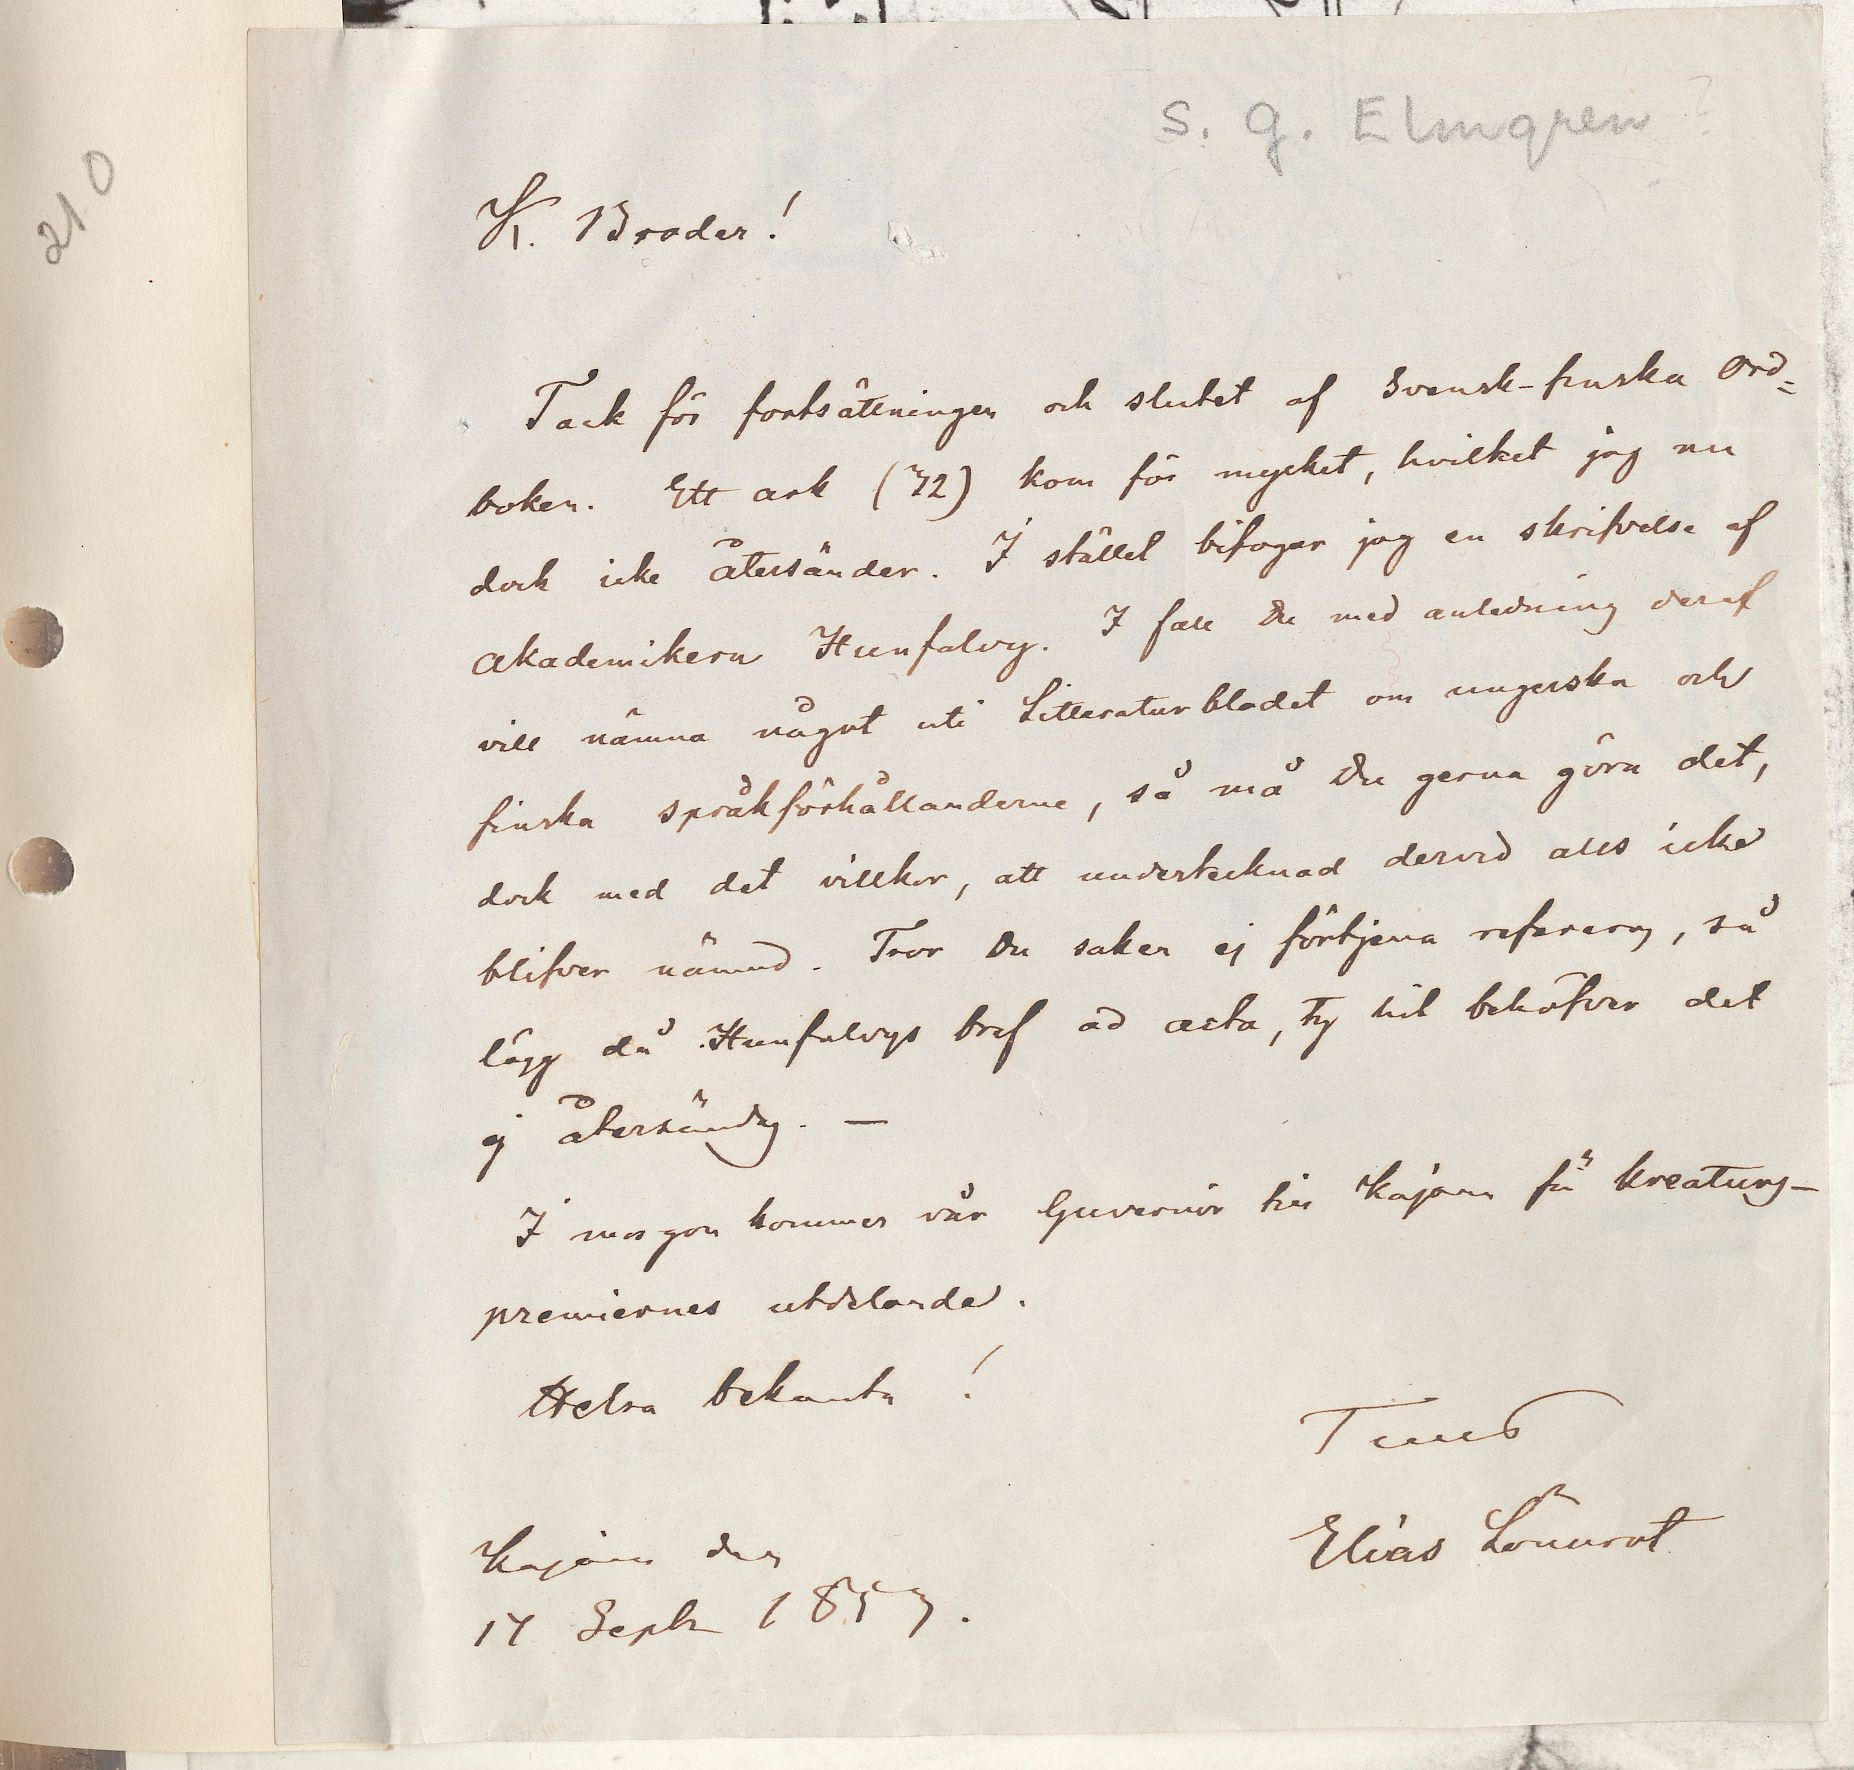 210
S. G. Elmgren ?
K. Broder!
Tack för fortsättningen och slutet af Svensk-finska Ord=
boken. Ett ark (72) kom för mycket, hvilket jag nu
dock icke återsänder. I stället bifogar jag en skrifvelse af
Akademikern Hunfalvy. I fall Du med anledning deraf
vill nämna något uti Litteraturbladet om ungerska och
finska språkförhållanderne, så må Du gerna göra det,
dock med det villkor, att undertecknad dervid alls icke
blifver nämnd. Tror Du saken ej förtjena referering, så
lägg då Hunfalvys bref ad acta, ty hit behöfver det
ej återsändas. —
I morgon kommer vår Guvernör till Kajana för kreaturs-
premiernes utdelande.
Helsa bekanta!
Tuus
Elias Lönnrot
Kajana den
17 Sept. 1857.